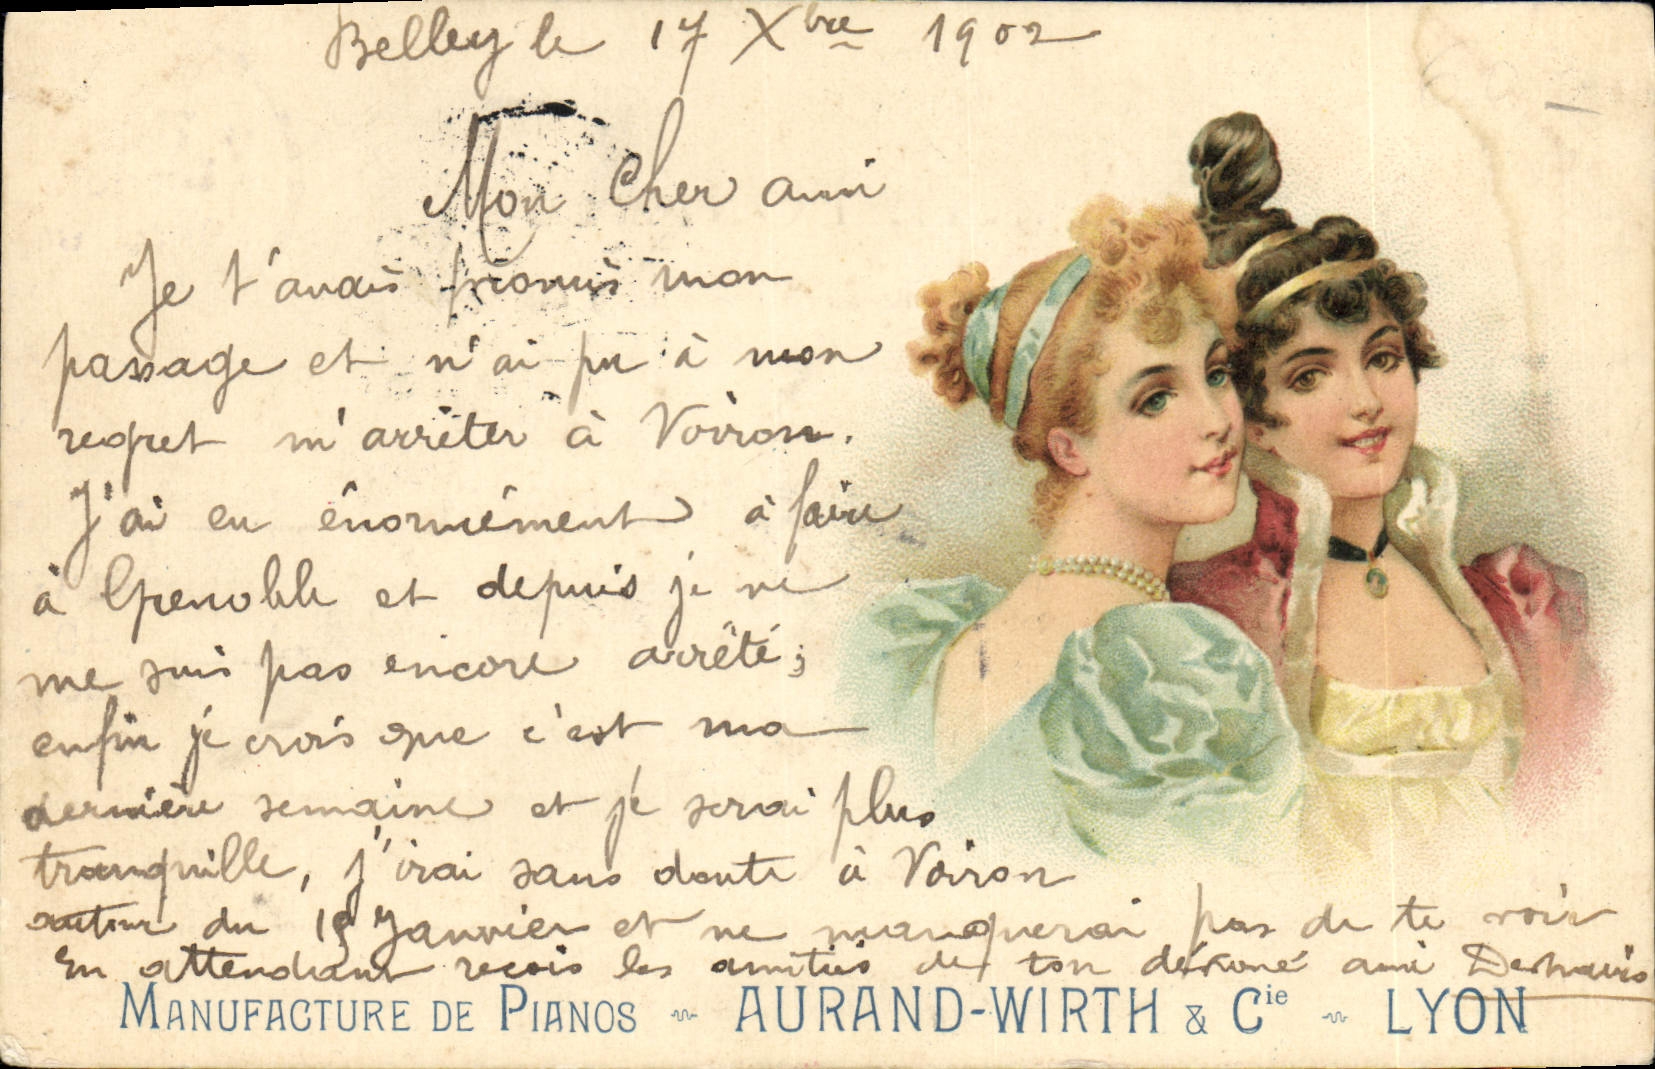 Belley le 17 Xbre 1902
Mon Cher ami
Je t'avais promis mon
passage et n'ai pu à mon
regret m'arrêter à Voiron.
J'ai eu énormément à faire
à Grenoble et depuis je ne
me suis pas encore arrêté;
enfin je crois que c'est ma
dernière semaine et je serai plus
tranquille, j'irai sans doute à Voiron
autour du 15 Janvier et ne manquerai pas de te voir
En attendant reçois les amitiés de ton dévoué ami
MANUFACTURE DE PIANOS ~ AURAND-WIRTH & Cie ~ LYON